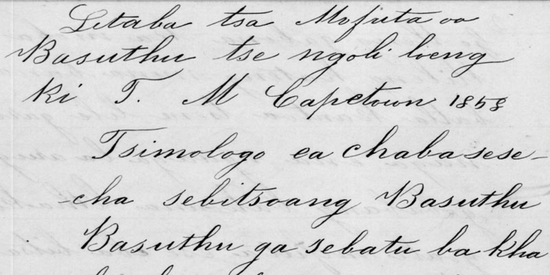 Litaba tsa Mofuta oa
Basuthu tse ngoli loeng
Ki T. M Capetown 1858
Tsimologo ea chaba sese-
-cha sebitsoang Basuthu
Basuthu ga sebatu ba kha